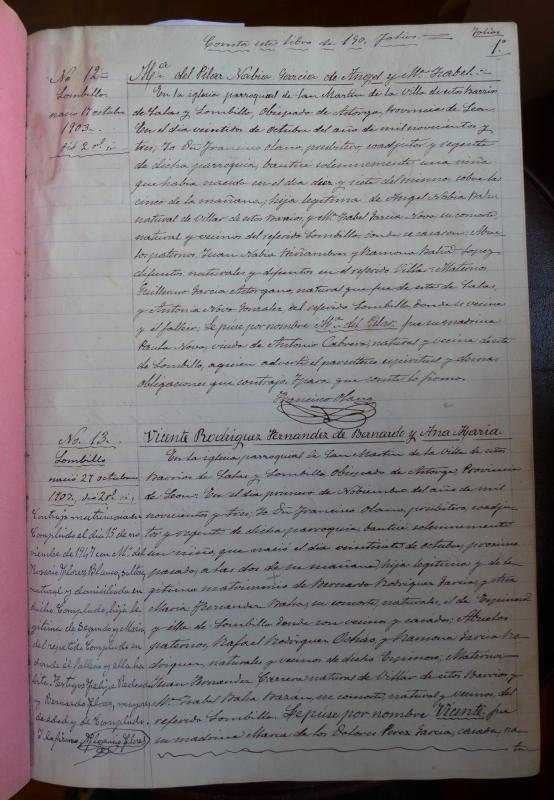 Consta este libro de 190 folios.
Folios
1º
No 12=
Lombillo
nacio 17 octubre
1903-.
Mª del Pilar Nabia Garcia de Angel y Mª Isabel.-
En la iglesia parroquial de San Martin de la Villa de estos Barrios
de Salas y Lombillo, Obispado de Astorga, Provincia de Leon
En el dia veintidos de octubre del año de mil novecientos y
tres, Yo Dn Francisco Olano, presbitero, coadjutor y regente
de dicha parroquia, bautice solemnemente una niña
que habia nacido en el dia diez y siete del mismo sobre la
cinco de la mañana, hija legitima de Angel Nabia
natural de Villar de estos Barrios, y Mª Isabel Garcia Novo, su consorte
natural y vecinos del referido Lombillo, donde se casaron. Abue
los paternos, Juan Nabia y Ramona Lopez
difuntos, naturales y difuntos en el referido Villar: Maternos,
Guillermo Garcia Astorgano, natural que fue de esta de Salas,
y Antonia Novo Gonzalez del referido Lombillo, donde es vecina
y el fallecio. Le puse por nombre Mª del Pilar, fue su madrina
Paula Novo, viuda de Antonio Cabrera, natural y vecina de este
de Lombillo, a quien adverti el parentesco espiritual y demas
obligaciones que contrajo. Y para que conste lo firmo.
Francisco Olano
No. 13.
Lombillo
nació 27 octubre
1903.
Vicente Rodriguez Fernandez de Bernardo y Ana Maria.
En la iglesia parroquial de San Martin de la Villa de estos
Barrios de Salas y Lombillo Obispado de Astorga, Provincia
de Leon: En el dia primero de Nobiembre del año de mil
novecientos y tres, Yo Dn Francisco Olano, presbitero, coadju-
tor y regente de dicha parroquia, bautice solemnemente
un niño que nació el dia veintisiete de octubre, proximo
pasado, a las dos de su mañana, hijo legitimo y de le
gitimo matrimonio de Bernardo Rodriguez Garcia, y Ana
Maria Fernandez Balia, su consorte, naturales, él de Espinoso
y ella de Lombillo donde son vecinos y casados; Abuelos
paternos, Rafael Rodriguez Ochoa, y Ramona Garcia Ro
driguez, naturales y vecinos de dicho Espinoso; Maternos
Juan Fernandez Carrera natural de Villar de estos Barrios y
Mª Isabel Balia Bazán, su consorte natural y vecinos, del
referido Lombillo. Le puse por nombre Vicente, fue
su madrina Maria de los Dolores Perez Garcia, casada, na-
tu
Contrajo matrimonio en
Compludo el dia 15 de no
viembre de 1947 con Mª del
Rosario Florez Blanco, soltera,
natural y domiciliada en
dicho Compludo, hija le
gitima de Segundo y Maria
del repetido Compludo en
donde él fallecio y ella ha
bita. Testigos Felipe
y Bernardo Florez, mayores
de edad y de Compludo.
Y lo firmo,